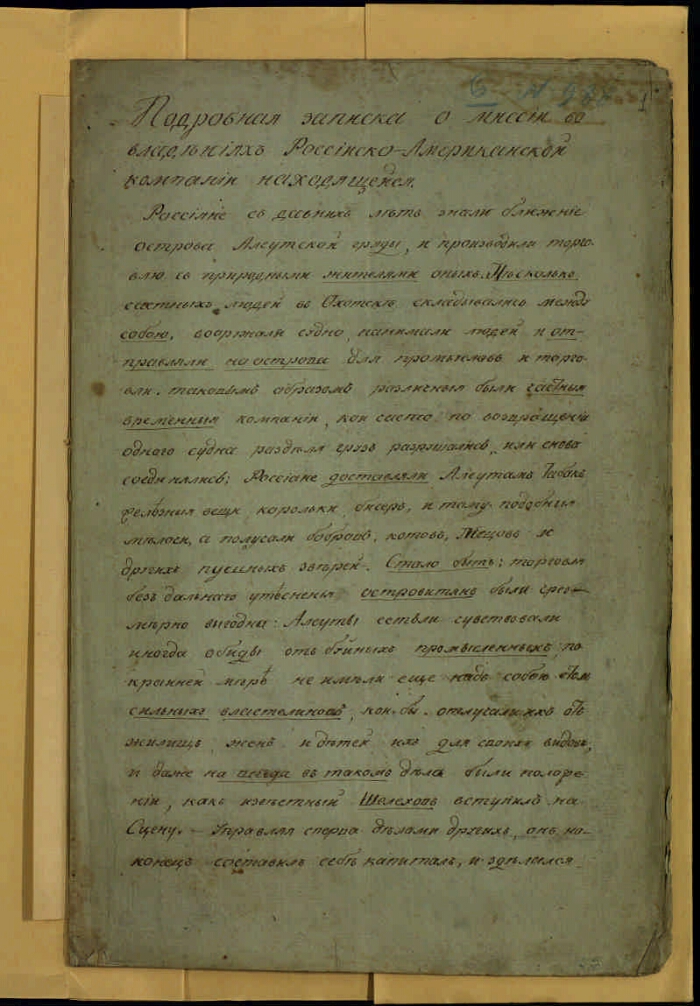 Подробная записка о миссіи во
владѣніяхъ Россійско-Американской
компаніи находящейся.
Россіяне съ давнихъ лѣтъ знали ближніе
острова Алеутской гряды, и производили торго
влю съ природными жителями оныхъ. Нѣсколько
частныхъ людей въ Охотскѣ складывались между
собою, вооружали судно, нанимали людей и от-
правляли на острова для промысловъ и торго
вли. таковымъ образомъ различныя были частныя
временныя компаніи, кои часто по возвращеніи
одного судна раздѣля грузъ разрушались, или снова
соединялись; Россіяне доставляли Алеутамъ Табакъ
желѣзныя вещи корольки, бисеръ, и тому подобныя
мѣлочи, а получали бобровъ, котовъ, Песцовъ и
другихъ пушныхъ звѣрей. Стало быть: торговля
безъ дальнаго утѣсненья островитянъ была чрез-
мѣрно выгодна: Алеуты естьли чувствовали
иногда обиды отъ буйныхъ промышленныхъ, по
крайней мѣрѣ не имѣли еще надъ собою тѣхъ
сильныхъ властелиновъ, кои бы отлучали ихъ отъ
жилищъ, женъ и дѣтей ихъ для своихъ видовъ,
и даже на въ такомъ дѣла были положе-
ніи, какъ извѣстный Шелеховъ вступилъ на
Сцену. – Управляя сперва дѣлами другихъ, онъ на-
конецъ составилъ себѣ капиталъ, и здѣлался